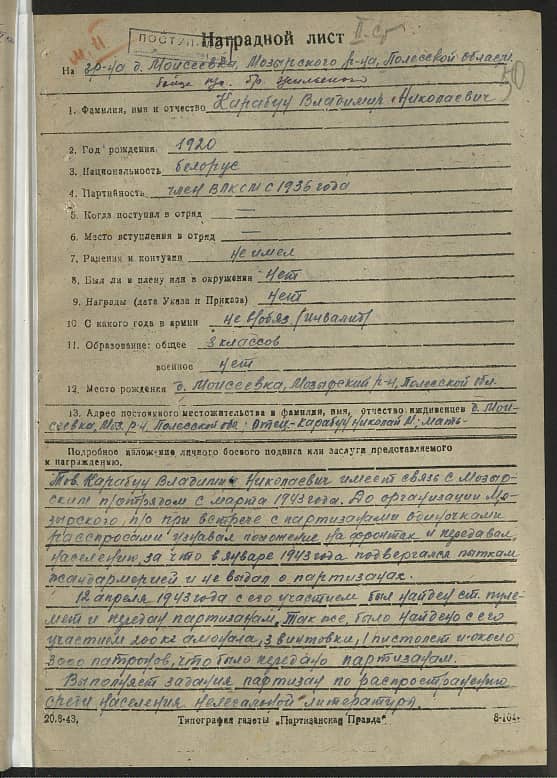 ПОСТУП
Наградной лист II ср
50
На гр-на д. Моисеевка, Мозырского р-на, Полесской области.
бойца
1. Фамилия, имя и отчество Карабун Владимир Николаевич
2. Год рождения 1920
3. Национальность белорус
4. Партийность член ВЛКСМ с 1936 года
5. Когда поступил в отряд —
6. Место вступления в отряд —
7. Ранения и контузии не имел
8. Был ли в плену или в окружении Нет
9. Награды (дата Указа и Приказа) Нет
10 С какого года в армии не в/обяз (инвалит)
11. Образование: общее 3 классов
военное нет
12. Место рождения д. Моисеевка, Мозырский р-н, Полесской обл.
13. Адрес постоянного местожительства и фамилия, имя, отчество иждивенцев д. Мои-
сеевка, Моз. р-н, Полесской обл: отец-Карабун Николай М; мать-
Подробное изложение личного боевого подвига или заслуги представляемого
к награждению.
Тов. Карабун Владимир Николаевич имеет связь с Мозыр-
ским п/отрядом с марта 1943 года. До организации Мо-
зырского п/о при встрече с партизанами одиночками
расспросами узнавал положение на фронтах и передавал
населению, за что в январе 1943 года подвергался пыткам
жандармерией и не выдал о партизанах.
12 апреля 1943 года с его участием был найден ст. пуле-
мет и передан партизанам. Так же, было найдено с его
участием 200 кг амонала, 3 винтовки, 1 пистолет и около
3000 патронов, что было передано партизанам.
Выполняет задания партизан по распространению
среди населения нелегальной литературы.
20.8-43, Типография газеты „Партизанская Правда" 8-104